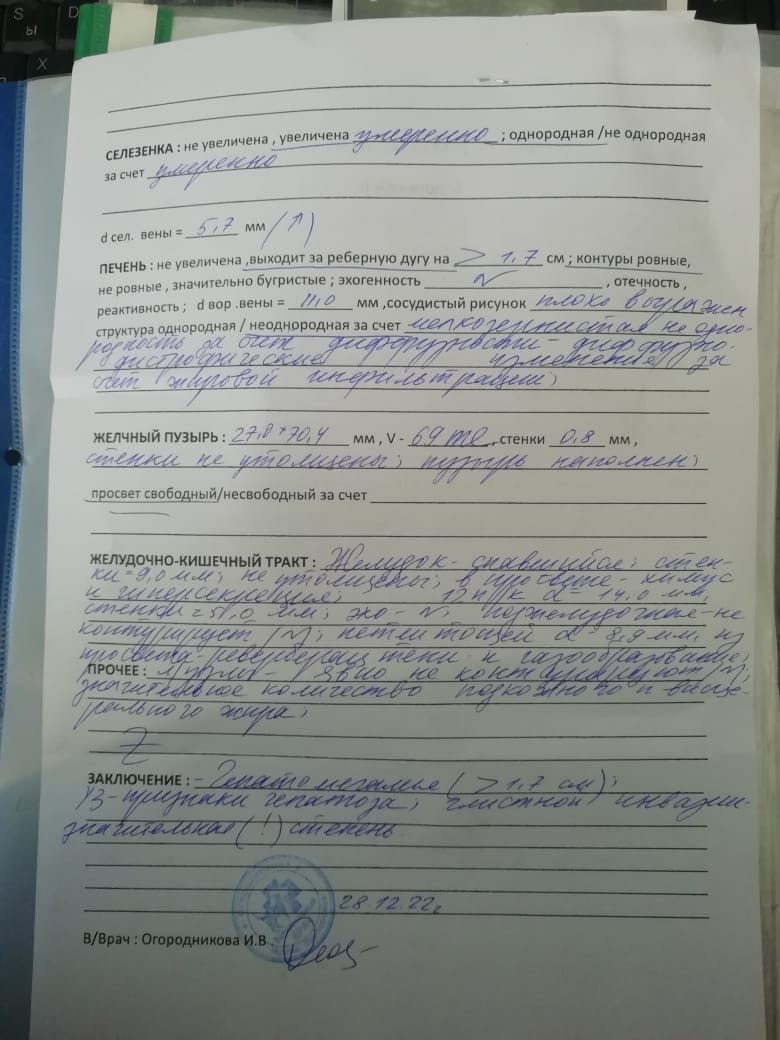 S
D
Ы
X
СЕЛЕЗЕНКА : не увеличена , увеличена умеренно ; однородная /не однородная
за счет умеренно
d сел. вены = 5,7 мм (↑)
ПЕЧЕНЬ : не увеличена ,выходит за реберную дугу на > 1,7 см ; контуры ровные,
не ровные , значительно бугристые ; эхогенность N , отечность ,
реактивность ; d вор .вены = 11,0 мм ,сосудистый рисунок плохо выражен
структура однородная / неоднородная за счет мелкозернистая не одно-
родность за счет диффузности - диффузно-
дистрофические изменения, за
счет жировой инфильтрации;
ЖЕЛЧНЫЙ ПУЗЫРЬ : 27,0 × 70,4 мм , V - 69 ml ,стенки 0,8 мм ,
стенки не утолщены; пузырь наполнен;
просвет свободный/несвободный за счет
ЖЕЛУДОЧНО-КИШЕЧНЫЙ ТРАКТ : Желудок - спавшийся; стен-
ки = 9,0 мм; не утолщены; в просвете - химус
и гиперсекреция; 12 п/к d = 14,0 мм,
стенки = 5,0 мм; эхо - N; поджелудочная - не
контурирует (N); петли тощей d = 8,9 мм, из
просвета реверберац тени и газообразование;
ПРОЧЕЕ : л/узлы - явно не контурируют (N);
значительное количество подкожного и висце-
рального жира;
ЗАКЛЮЧЕНИЕ : - Гепатомегалия (> 1,7 см);
УЗ - признаки гепатоза; глистной инвазии -
значительная (!) степень.
28.12.22г
В/Врач : Огородникова И.В .